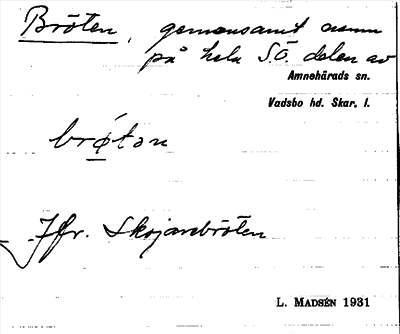 Bröten, gemensamt namn
på hela S.Ö. delen av
Amnehärads sn.
Vadsbo hd. Skar. l.
brǿtən
Jfr. Skojarebröten
L. MADSÉN 1931